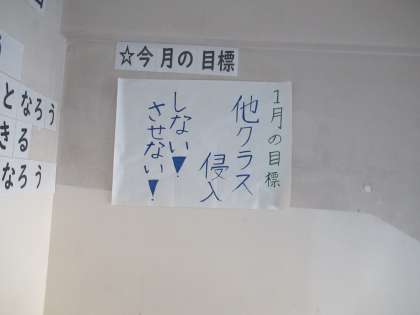 ☆今月の目標
1月の目標
他クラス
侵入
しない!
させない!
となろう
きる
なろう